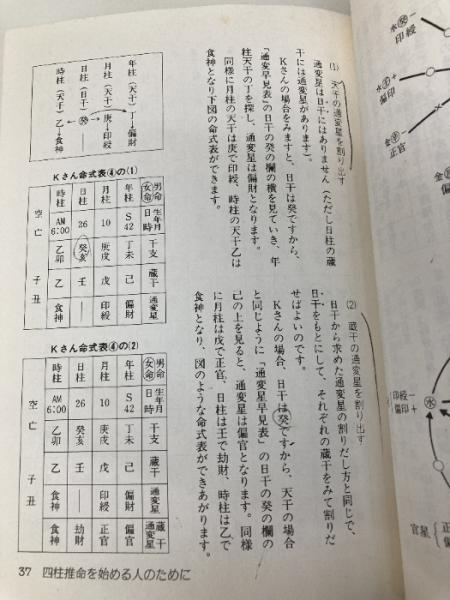 (1) 天干の通変星を割り出す
通変星は日干にはありません（ただし日柱の蔵
干には通変星があります）。
Kさんの場合をみますと、日干は癸ですから、
「通変早見表」の日干の癸の欄の横を見ていき、年
柱天干の丁を探し、通変星は偏財となります。
同様に月柱の天干は庚で印綬、時柱の天干乙は
食神となり下図の命式表ができます。
(2) 蔵干の通変星を割り出す
日干から求めた通変星の割りだし方と同じで、
日干をもとにして、それぞれの蔵干をみて割りだ
せばよいのです。
Kさんの場合、日干は癸ですから、天干の場合
と同じように「通変星早見表」の日干の癸の欄の
己の上を見ると、通変星は偏官となります。同様
に月柱は戊で正官、日柱は壬で劫財、時柱は乙で
食神となり、図のような命式表ができあがります。
年柱（天干）丁→偏財
月柱（天干）庚→印綬
日柱（日干）癸
時柱（天干）乙→食神
Kさん命式表④の(1)
男命 女命 年柱 月柱 日柱 時柱
生年月日時 S42 10 26 AM6:00 空亡
干支 丁未 庚戌 癸亥 乙卯
蔵干 己 戊 壬 乙 子丑
通変星 偏財 印綬 ― 食神
Kさん命式表④の(2)
男命 女命 年柱 月柱 日柱 時柱
生年月日時 S42 10 26 AM6:00 空亡
干支 丁未 庚戌 癸亥 乙卯
蔵干 己 戊 壬 乙 子丑
通変星 偏財 印綬 ― 食神
蔵干通変星 偏官 正官 劫財 食神
37 四柱推命を始める人のために
水癸−
印綬
水＋
偏印
金−
正官
印綬−
偏印＋
水
官星